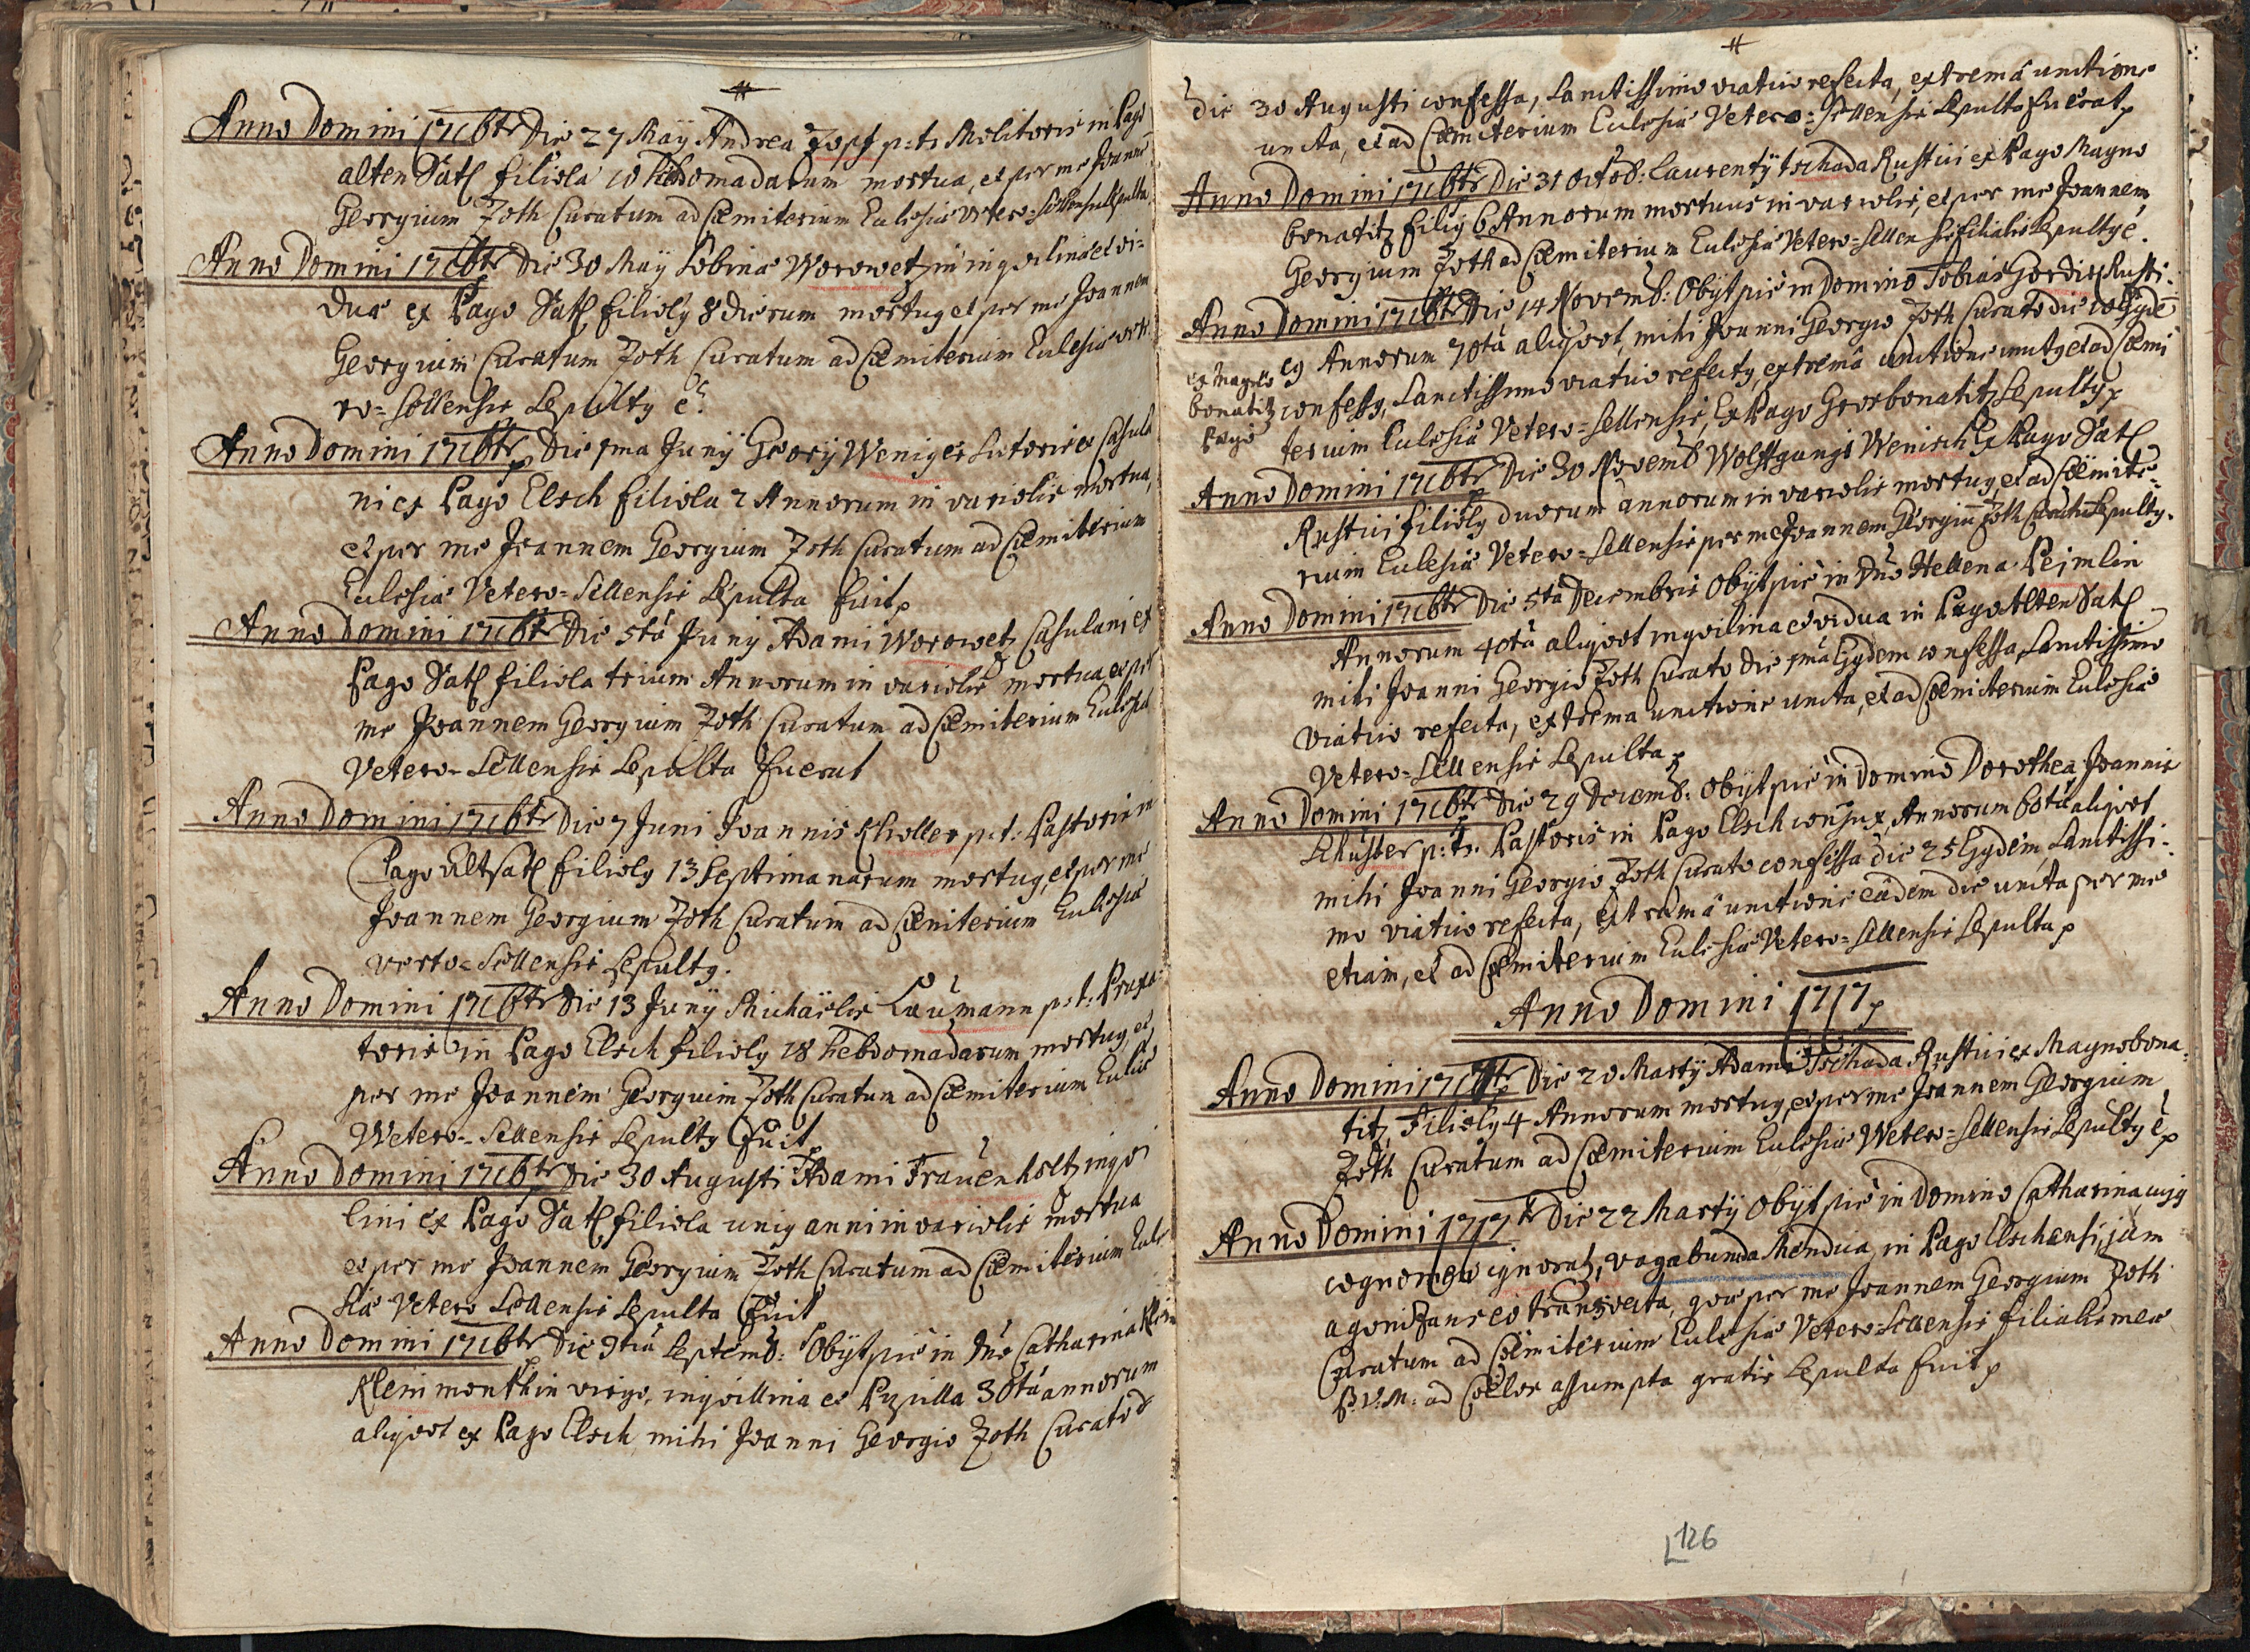 Anno Domini 1716tr Die 27 Maÿ Andrea Zopf p:t: Molitoris in Pago
alten Satl filiola 10 Hebdomadarum mortua, et per me Joanne
Georgium Zoth Curatum ad Cœmiterium Eulesiæ Vetero=Sellensis Sepulta
Anno Domini 1716tr Die 30 Maÿ Sobinæ Worowetzin inqvilinæ et vi=
duæ ex Pago Satl filioly 8 dierum mortuy et per me Joannem
Georgium Curatum Zoth Curatum ad Cœmiterium Eulesiæ vete
ro=Sellensis Sepulty é.
Anno Domini 1716tr Die 1ma Junÿ Georÿ Weniger Sutoris et Casula
ni ex Pago Elsch filiola 2 Annorum in variolis mortua,
et per me Joannem Georgium Zoth Curatum ad Cœmiterium
Eulesiæ Vetero=Sellensis Sepulta fuit
Anno Domini 1716tr Die 5ta Junÿ Adami Worowetz Casulani ex
Pago Satl filiola trium Annorum in variolis mortua, et per
me Joannem Georgium Zoth Curatum ad Cœmiterium Eulesiæ
Vetero=Sellensis Sepulta fuerat
Anno Domini 1716tr Die 7 Juni Joannis Kholler p:t: Pastoris in
Pago altsatl filioly 13 Septimanarum mortuy, et per me
Joannem Georgium Zoth Curatum ad Cœmiterium Eulesiæ
Vetero=Sellensis Sepulty.
Anno Domini 1716tr Die 13 Junÿ Michaëlis Laumann p:t: Praxa=
toris in Pago Elsch filioly 18 hebdomadarum mortuy, et
per me Joannem Georgium Zoth Curatum ad Cœmiterium Eulesiæ
Wetero=Sellensis Sepulty fuit
Anno Domini 1716tr Die 30 Augusti Adami Frauenholtz inqvi
lini ex Pago Satl filiola uniy anni in variolis mortua
et per me Joannem Georgium Zoth Curatum ad Cœmiterium Eule
siæ Vetero Sellensis Sepulta fuit
Anno Domini 1716tr Die 9tia Septemb: Obÿt pie in Dno Catharina
Kleinmonthin virgo, inqvillina et Pupilla 30ta annorum
aliqvot ex Pago Elsch, mihi Joanni Georgio Zoth Curato
die 30 Augusti confessa, Sanctissimo viatico refecta, extremâ unctione
uncta, et ad Cœmiterium Eulesiæ Vetero=Sellensis Sepulta fuerat
Anno Domini 1716tr Die 31 octob: Laurentÿ tschada Rustici ex Pago Magno
bonatitz filiy 6 Annorum mortuus in variolis, et per me Joannem
Georgium Zoth ad Cœmiterium Eulesiæ Vetero=Sellensis filialis Sepulty é.
Anno Domini 1716tr Die 14 Novemb: Obÿt pie in Domino Tobias Gordis Rusti=
cy Annorum 70ta aliqvot, mihi Joanni Georgio Zoth Curato die
ex Magno
bonatitz
Pago
confessy, Sanctissimo viatico refecty, extremâ unctione uncty et ad Cœmi
terium Eulesiæ Vetero=Sellensis, Ex Pago Grosbonatitz Sepulty
Anno Domini 1716tr Die 30 Novemb Wolffgangi Wenisch Ex Pago Satl
Rustici filioly duorum annorum in variolis mortuy, et ad Cœmite=
rium Eulesiæ Vetero=Sellensis per me Joannem Georgiu Zoth Curatu Sepulty.
Anno Domini 1716tr Die 5ta Decembris Obÿt pie in Dno Hellena Peimlin
Annorum 40ta aliqvot inqvilina et vidua in Pago Alten Satl
mihi Joanni Georgio Zoth Curato Die 1mâ Ejydem confessa, Sanctissimo
viatico refecta, extrema unctione uncta, et ad Cœmiterium Eulesiæ
Vetero=Sellensis Sepulta
Anno Domini 1716tr Die 29 Decemb: Obÿt pie in Domino Dorothea, Joannis
Schuster p:t: Pastoris in Pago Elsch conjux, Annorum 60ta aliqvot
mihi Joanni Georgio Zoth Curato confessa die 25 Ejydem, Sanctissi=
mo viatico refecta, extremâ unctione eâdem die uncta per me
etiam, et ad Cœmiterium Eulesiæ Vetero=Sellensis Sepulta
Anno Domini 1717
Anno Domini 1717tr Die 20 Martÿ Adami Tschada Rustici ex Magnobona=
titz, Filioly 4 Annorum mortuy, et per me Joannem Georgium
Zoth Curatum ad Cœmiterium Eulesiæ Wetero=Sellensis Sepulty é
Anno Domini 1717tr Die 22 Martÿ Obÿt pie in Domino Catharina cujy
cognomen ignorat, vagabunda Mendica, in Pago Elschensi, jam
agonizans eo transvecta, qvæ per me Joannem Georgium Zoth
Curatum ad Cœmiterium Eulesiæ Vetero=Sellensis filialis meæ
B:V:M: ad Cœlos assumpta gratis Sepulta fuit
126